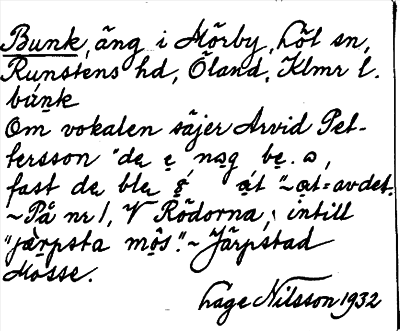 Bunk, äng i Mörby, Löt sn,
Runstens hd, Öland, Klmr l.
búṉk
Om vokalen säjer Arvid Pet-
tersson "de̤ e̤ nəg be̤. ɔ,
fast de̤ ble̤ át" ~ a̤t = av det.
~ På nr 1, V Rödorna, intill
"jæ̀rpsta mǫ̂s". ~ Järpstad
Mosse.
Låge Nilsson 1932